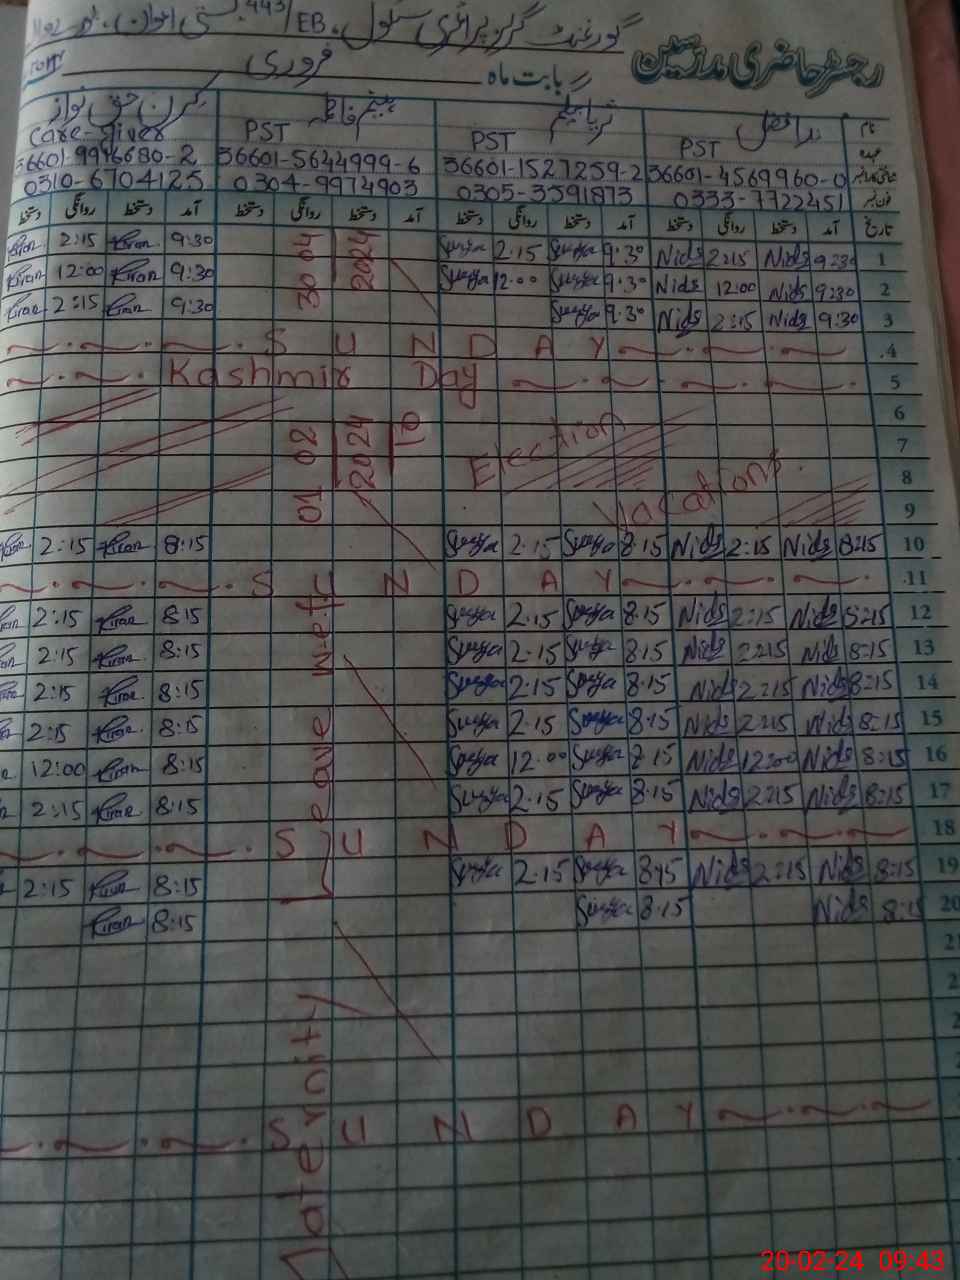 گورنمنٹ گرلز پرائمری سکول 443/EB بستی اعوان
رجسٹر حاضری مدرسین
بابت ماہ فروری
نام ثریا بیگم کرن حق نواز
عہدہ PST PST PST Care-giver
شناختی کارڈ نمبر 36601-4569960-0 36601-1527259-2 36601-5644999-6 36601-9946680-2
فون نمبر 0333-7722451 0305-3591873 0304-9974903 0310-6704125
تاریخ آمد دستخط روانگی دستخط آمد دستخط روانگی دستخط آمد دستخط روانگی دستخط آمد دستخط روانگی دستخط
1 9:30 Nida 2:15 Nida 9.30 Surya 2.15 Surya 9:30 Kiran 2:15 Kiran
2 9:30 Nida 12:00 Nida 9.30 Surya 12.00 Surya 9:30 Kiran 12:00 Kiran
3 9:30 Nida 2:15 Nida 9.30 Surya 9:30 Kiran 2:15 Kiran
4 SUNDAY
5 Kashmir Day
6
7 Election
8 Vacations
9
10 8:15 Nida 2:15 Nida 8.15 Surya 2.15 Surya 8:15 Kiran 2:15 Kiran
11 SUNDAY
12 8:15 Nida 2:15 Nida 8.15 Surya 2.15 Surya 8:15 Kiran 2:15 Kiran
13 8:15 Nida 2:15 Nida 8.15 Surya 2.15 Surya 8:15 Kiran 2:15 Kiran
14 8:15 Nida 2:15 Nida 8.15 Surya 2.15 Surya 8:15 Kiran 2:15 Kiran
15 8:15 Nida 2:15 Nida 8.15 Surya 2.15 Surya 8:15 Kiran 2:15 Kiran
16 8:15 Nida 12:00 Nida 8.15 Surya 12.00 Surya 8:15 Kiran 12:00 Kiran
17 8:15 Nida 2:15 Nida 8.15 Surya 2.15 Surya 8:15 Kiran 2:15 Kiran
18 SUNDAY
19 8:15 Nida 2:15 Nida 8.15 Surya 2.15 Surya 8:15 Kiran 2:15 Kiran
20 8:15 Nida 8.15 Surya 8:15 Kiran
SUNDAY
Maternity Leave w.e.f 01/02/2024 To 30/04/2024
20-02-24 09:43